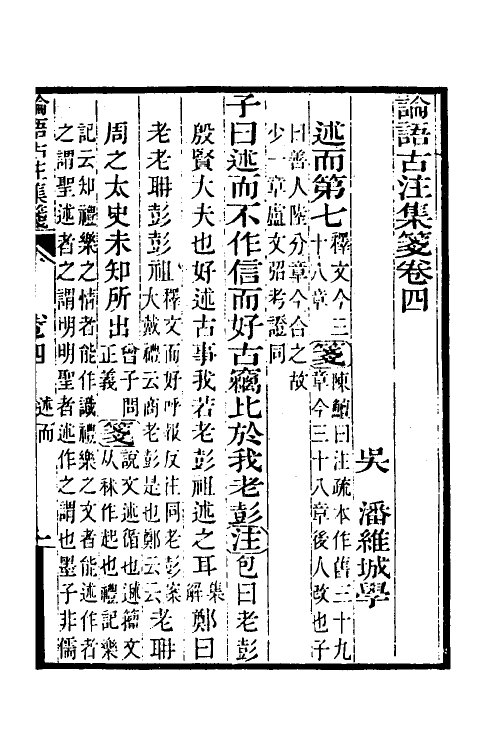 論語古注集箋卷四
吳 潘維城學
述而第七釋文今三十八章箋陳鱣曰注疏本作舊三十九章今三十八章後人改也子
曰善人陛分章今合之故
少一章盧文弨考證同
子曰述而不作信而好古竊比於我老彭注包曰老彭
殷賢大夫也好述古事我若老彭祖述之耳集解鄭曰
老老聃彭彭祖釋文而好呼報反注同老彭案大戴禮云商老彭是也鄭云老聃
周之太史未知所出曾子問正義箋說文述循也述籀文从秫作起也禮記樂
記云知禮樂之情者能作識禮樂之文者能述作者
之謂聖述者之謂明明聖者述作之謂也墨子非儒
論語古注集箋 卷四 述而 一